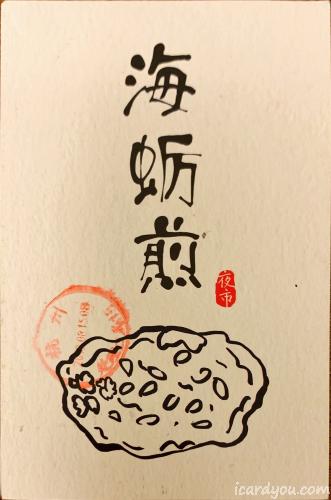 海
蛎
煎
夜
市
杭州
icardyou.com